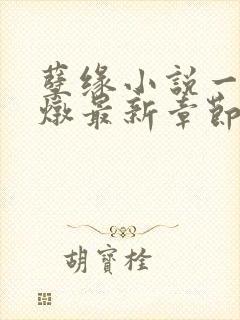 孽缘小説一
燉最新章節
胡寶栓